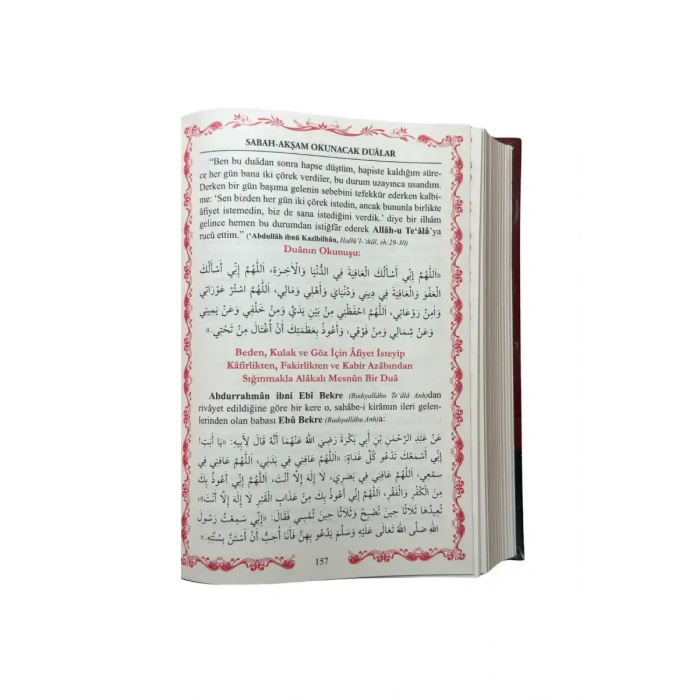 SABAH-AKŞAM OKUNACAK DUÂLAR
“Ben bu duâdan sonra hapse düştüm, hapiste kaldığım süre-
ce her gün bana iki çörek verdiler, bu durum uzayınca usandım.
Derken bir gün başıma gelenin sebebini tefekkür ederken kalbi-
me: ‘Sen bizden her gün iki çörek istedin, ancak bununla birlikte
âfiyet istemedin, biz de sana istediğini verdik.’ diye bir ilhâm
gelince hemen bu durumdan istiğfâr ederek Allâh-u Te‘âlâ’ya
rucû ettim.” (‘Abdullâh ibnü Kazîbilbân, Hallü’l-‘ıkâl, sh:29-30)
Duânın Okunuşu:
«اَللّٰهُمَّ إِنِّي أَسْأَلُكَ الْعَافِيَةَ فِي الدُّنْيَا وَالْاٰخِرَةِ، اَللّٰهُمَّ إِنِّي أَسْأَلُكَ
الْعَفْوَ وَالْعَافِيَةَ فِي دِينِي وَدُنْيَايَ وَأَهْلِي وَمَالِي، اَللّٰهُمَّ اسْتُرْ عَوْرَاتِي
وَاٰمِنْ رَوْعَاتِي، اَللّٰهُمَّ احْفَظْنِي مِنْ بَيْنِ يَدَيَّ وَمِنْ خَلْفِي وَعَنْ يَمِينِي
وَعَنْ شِمَالِي وَمِنْ فَوْقِي، وَأَعُوذُ بِعَظَمَتِكَ أَنْ أُغْتَالَ مِنْ تَحْتِي.»
Beden, Kulak ve Göz İçin Âfiyet İsteyip
Kâfirlikten, Fakirlikten ve Kabir Azâbından
Sığınmakla Alâkalı Mesnûn Bir Duâ
Abdurrahmân ibni Ebî Bekre (Radıyallâhu Te‘âlâ Anh)dan
rivâyet edildiğine göre bir kere o, sahâbe-i kirâmın ileri gelen-
lerinden olan babası Ebû Bekre (Radıyallâhu Anh)a:
عَنْ عَبْدِ الرَّحْمٰنِ بْنِ أَبِي بَكْرَةَ رَضِيَ اللهُ عَنْهُمَا أَنَّهُ قَالَ لِأَبِيهِ: «يَا أَبَتِ!
إِنِّي أَسْمَعُكَ تَدْعُو كُلَّ غَدَاةٍ: «اَللّٰهُمَّ عَافِنِي فِي بَدَنِي، اَللّٰهُمَّ عَافِنِي فِي
سَمْعِي، اَللّٰهُمَّ عَافِنِي فِي بَصَرِي، لَا إِلٰهَ إِلَّا أَنْتَ، اَللّٰهُمَّ إِنِّي أَعُوذُ بِكَ
مِنَ الْكُفْرِ وَالْفَقْرِ، اَللّٰهُمَّ إِنِّي أَعُوذُ بِكَ مِنْ عَذَابِ الْقَبْرِ لَا إِلٰهَ إِلَّا أَنْتَ»،
تُعِيدُهَا ثَلَاثًا حِينَ تُصْبِحُ وَثَلَاثًا حِينَ تُمْسِي فَقَالَ: «إِنِّي سَمِعْتُ رَسُولَ
اللهِ صَلَّى اللهُ تَعَالَى عَلَيْهِ وَسَلَّمَ يَدْعُو بِهِنَّ فَأَنَا أُحِبُّ أَنْ أَسْتَنَّ بِسُنَّتِهِ.»
157